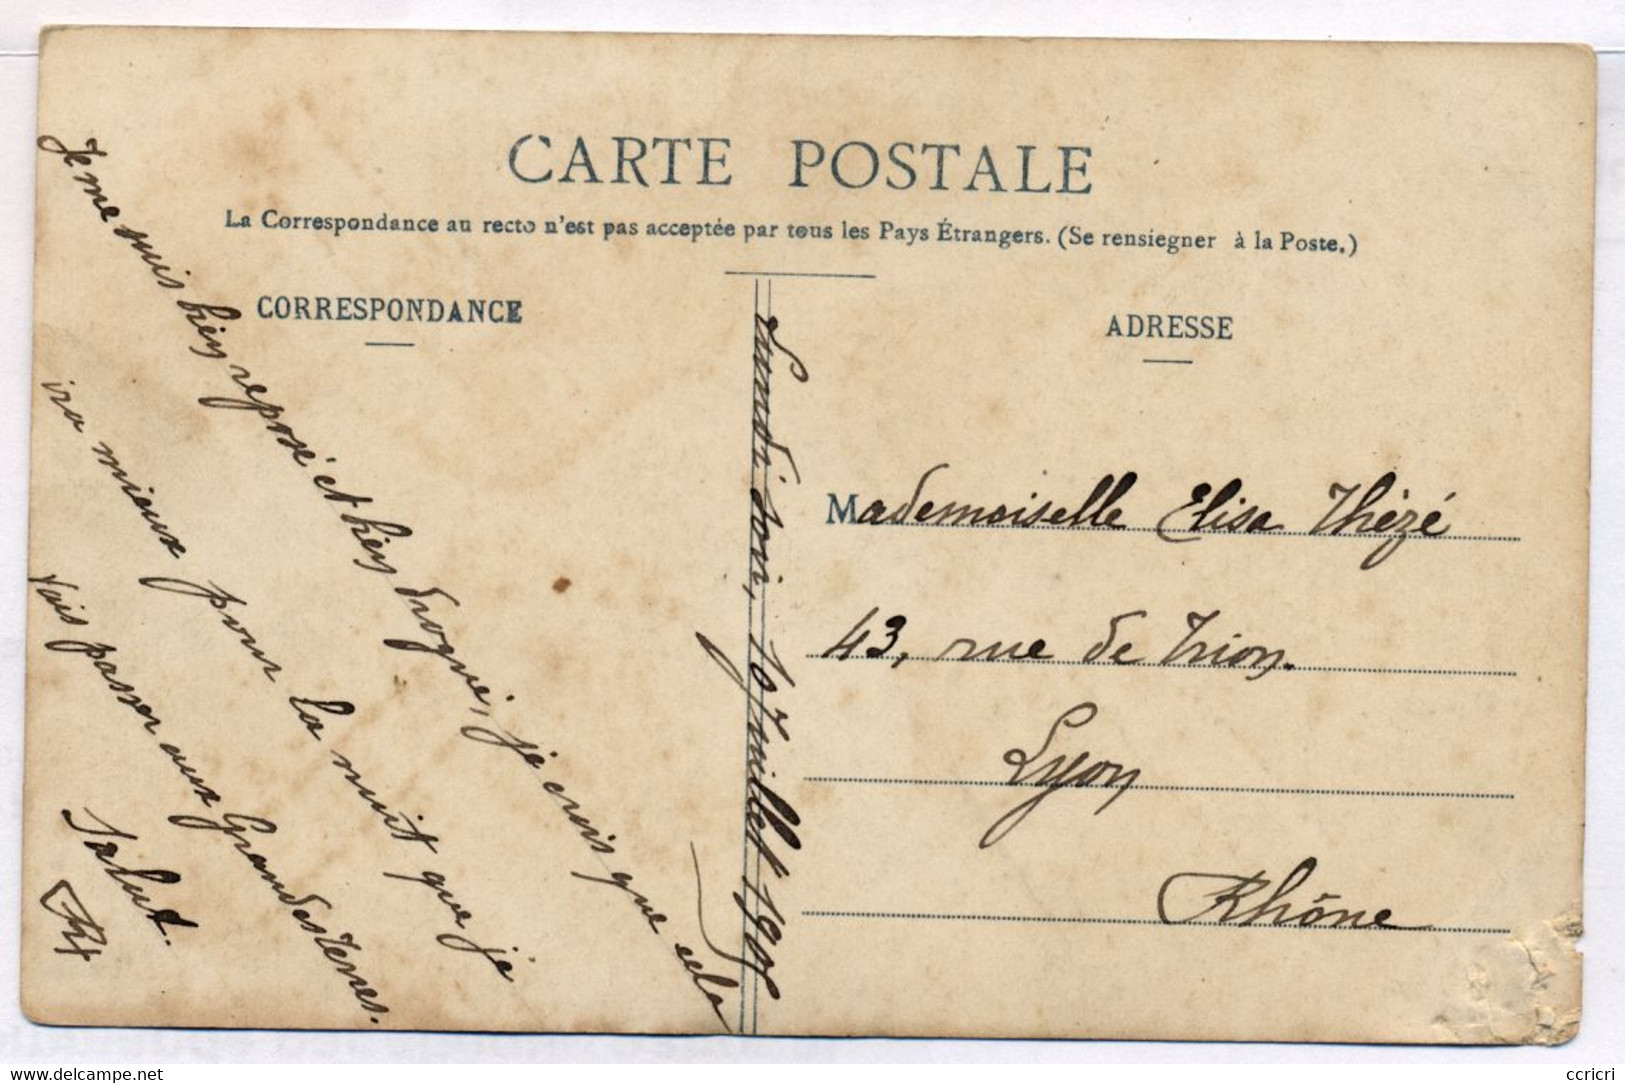 CARTE POSTALE
La Correspondance au recto n'est pas acceptée par tous les Pays Étrangers. (Se rensiegner à la Poste.)
CORRESPONDANCE
Je me suis bien reposé et bien drogué, je crois que cela
ira mieux pour la nuit que je
vais passer aux Grandes Terres.
Salut.
Lundi soir, 10 Juillet 1905
ADRESSE
Mademoiselle Elisa Thézé
43, rue de Trion.
Lyon
Rhône
www.delcampe.net
ccricri